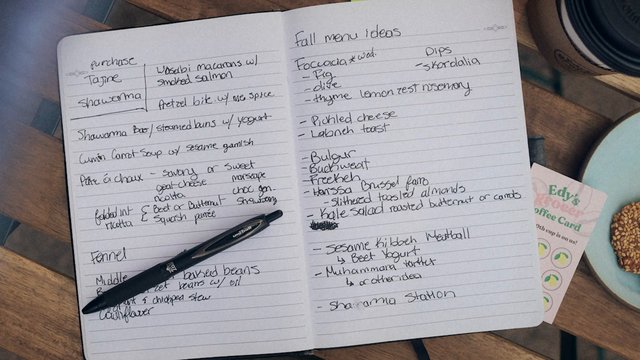 purchase
Tajine
Shawarma
Wasabi macarons w/
smoked salmon
Pretzel bite w/ spice
Shawarma Bao/steamed buns w/ yogurt
Cumin Carrot Soup w/ sesame garnish
Pâte à choux - savory or sweet
goat cheese
ricotta
choc gan.
folded int
ricotta
{ Beet or Butternut
Squash purée
Fennel
Middle baked beans
beans w/ oil
& chickpea stew
Cauliflower
Fall menu ideas
Foccacia *wed.
- Fig
- olive
- thyme lemon zest rosemary
Dips
- Skordalia
- Pickled cheese
- Labneh toast
- Bulgur
- Buckwheat
- Freekeh
- Harissa Brussel
- Slithered toasted almonds
- Kale Salad roasted butternut or carrots
- Sesame Kibbeh Meatball
↳ Beet Yogurt
- Muhammara
↳ or other idea
- Shawarma Station
Edy's
Grocer
Coffee Card
cup is on us!